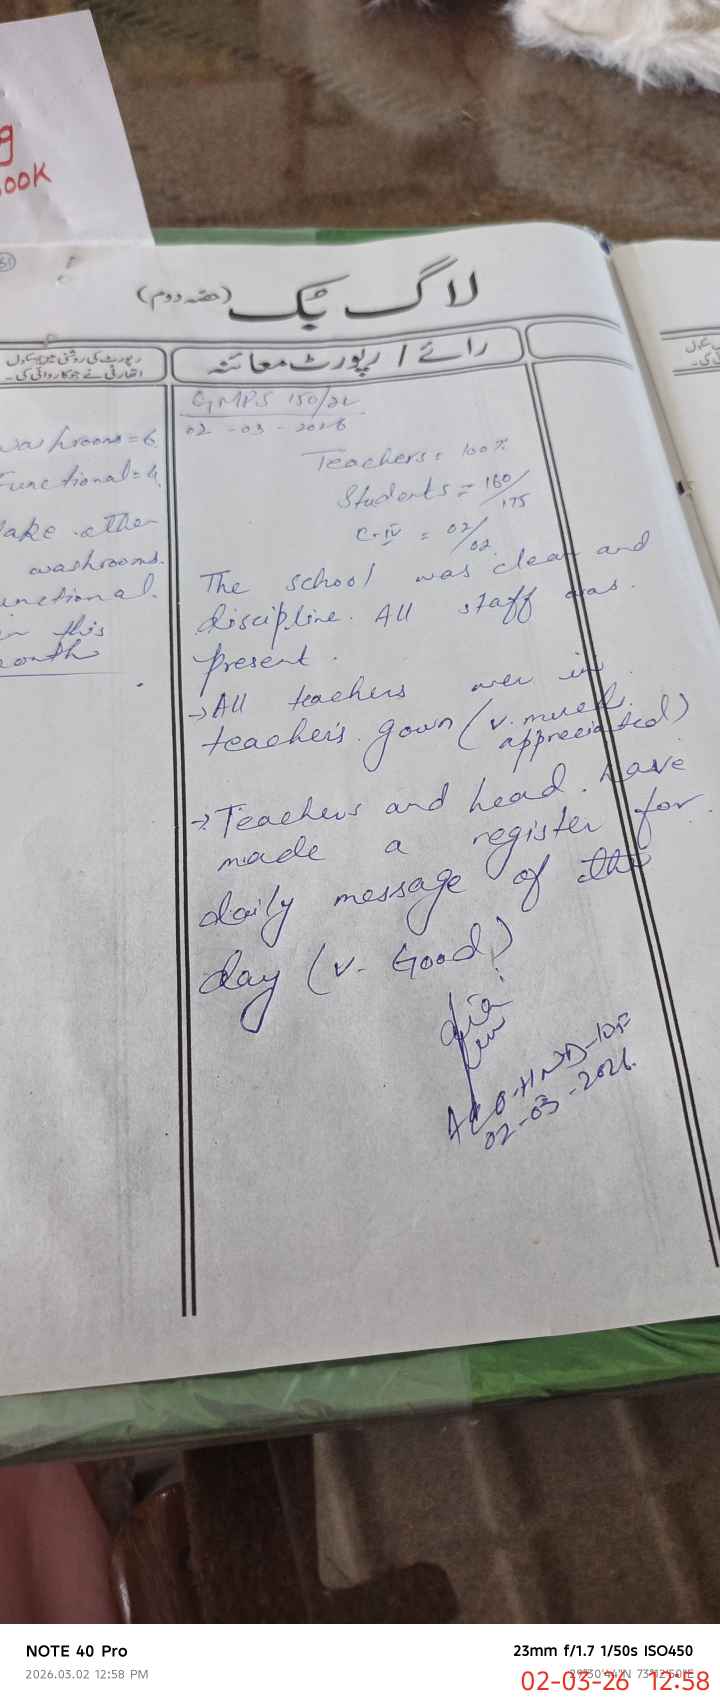 ook
لاگ بک (حصہ دوم)
رپورٹ کی روشنی میں سکول
اتھارٹی نے جو کارروائی کی۔
رائے / رپورٹ معائنہ
washrooms = 6
Functional = 4
other
washrooms
in this
month
GMPS 150/2L
02-03-2026
Teachers = 100%
Students = 160/175
C-IV = 02/02
The school was clean and
discipline. All staff was
present.
→ All teachers wer in
teacher's gown (v. much
appreciated)
→ Teachers and head have
made a register for
daily message of the
day (v. Good)
02-03-2026
NOTE 40 Pro
2026.03.02 12:58 PM
23mm f/1.7 1/50s ISO450
02-03-26 12:58